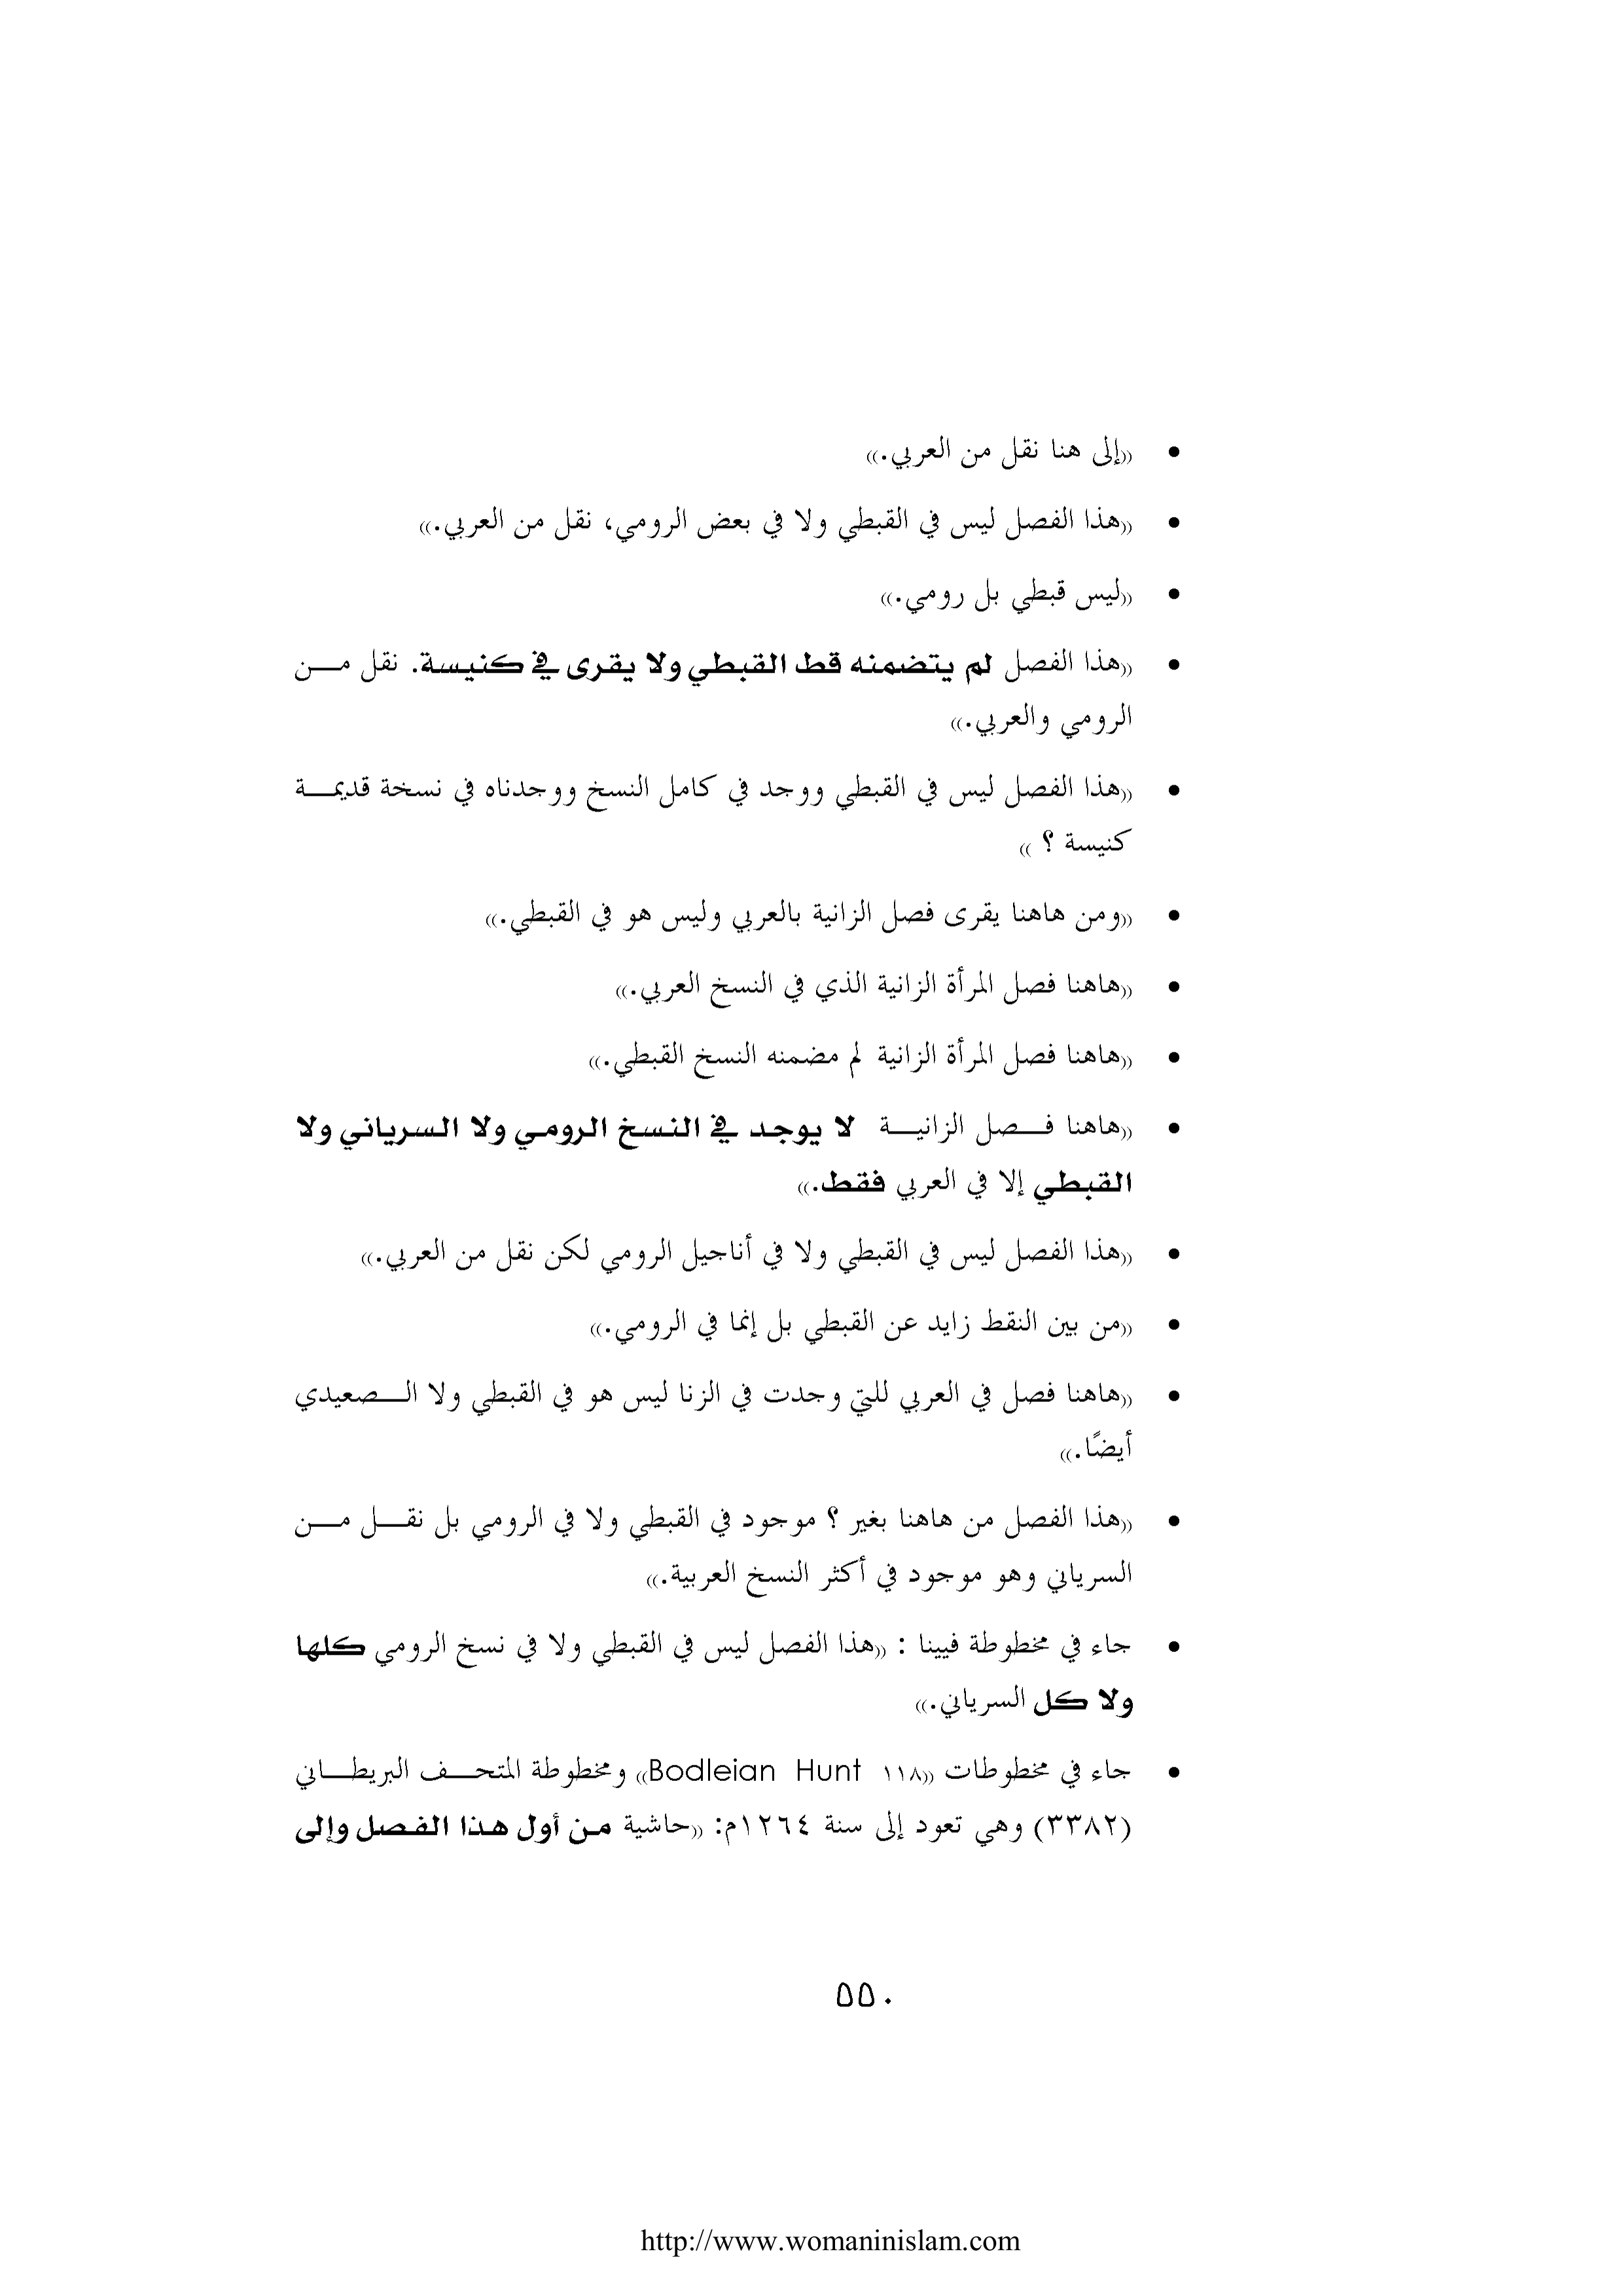 • «إلى هنا نقل من العربي.»
• «هذا الفصل ليس في القبطي ولا في بعض الرومي، نقل من العربي.»
• «ليس قبطي بل رومي.»
• «هذا الفصل لم يتضمنه قط القبطي ولا يقرى في كنيسة. نقل مـن
الرومي والعربي.»
• «هذا الفصل ليس في القبطي ووجد في كامل النسخ ووجدناه في نسخة قديمـة
كنيسة ؟ »
• «ومن هاهنا يقرى فصل الزانية بالعربي وليس هو في القبطي.»
• «هاهنا فصل المرأة الزانية الذي في النسخ العربي.»
• «هاهنا فصل المرأة الزانية لم مضمنه النسخ القبطي.»
• «هاهنا فـصل الزانيـة لا يوجد في النسخ الرومي ولا السرياني ولا
القبطي إلا في العربي فقط.»
• «هذا الفصل ليس في القبطي ولا في أناجيل الرومي لكن نقل من العربي.»
• «من بين النقط زايد عن القبطي بل إنما في الرومي.»
• «هاهنا فصل في العربي للتي وجدت في الزنا ليس هو في القبطي ولا الـصعيدي
أيضًا.»
• «هذا الفصل من هاهنا بغير ؟ موجود في القبطي ولا في الرومي بل نقـل مـن
السرياني وهو موجود في أكثر النسخ العربية.»
• جاء في مخطوطة فيينا : «هذا الفصل ليس في القبطي ولا في نسخ الرومي كلها
ولا كل السرياني.»
• جاء في مخطوطات «Bodleian Hunt ١١٨» ومخطوطة المتحـف البريطـاني
(٣٣٨٢) وهي تعود إلى سنة ١٢٦٤م: «حاشية من أول هذا الفصل وإلى
٥٥٠
http://www.womaninislam.com